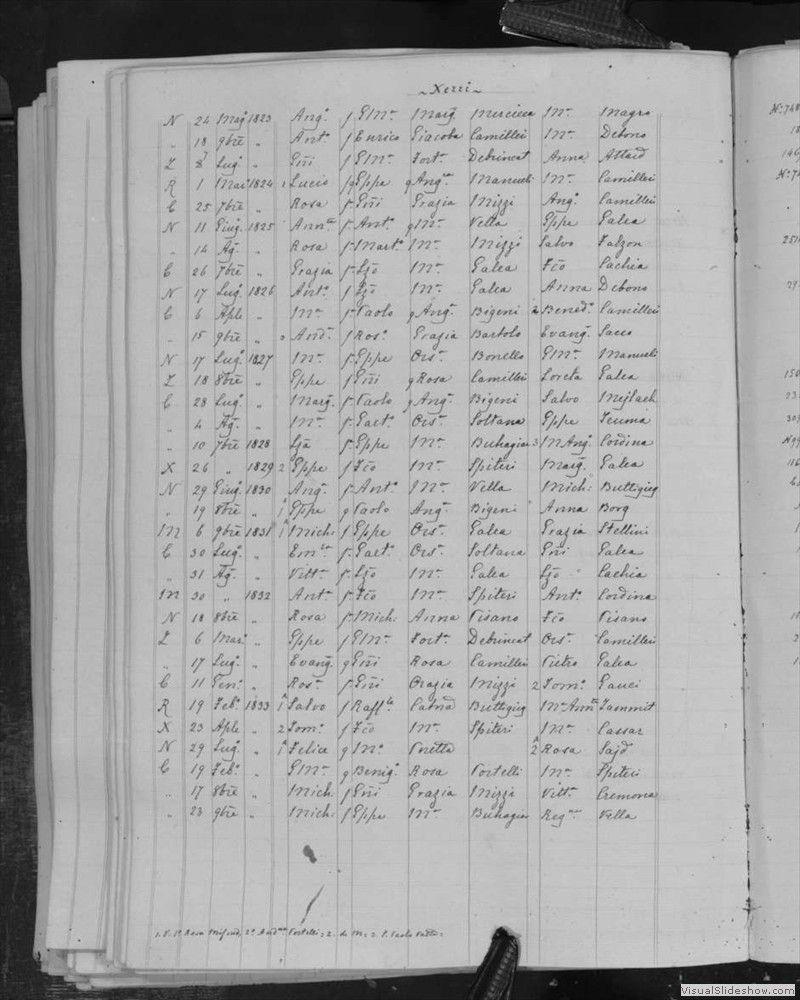 ~ Xerri ~
N 24 Mag 1823 Ang.ᵒ f GMª Marg. Mercieca Mª Magro
" 18 9bre " Antº f Enrico Giacoba Camilleri Mª Debono
Z 8 Lug.ᵒ " Gñi f GMª Fortª Debrincat Anna Attard
R 1 Mar 1824 Lucio f Gppe q Ang.ª Manueli Mª Camilleri
C 25 7bre " Rosa f Gñi Grazia Mizzi Ang.ᵒ Camilleri
N 11 Giug. 1825 Annª f Antº q Mª Vella Gppe Galea
" 14 Ag. " Rosa f Martº Mª Mizzi Salvo Falzon
C 26 7bre " Grazia f Lzo Mª Galea Fco Cachia
N 17 Lug.ᵒ 1826 Antº f Lzo Mª Galea Anna Debono
C 6 Aple " Mª f Paolo q Ang.ª Bigeni 2 Bened.ᵒ Camilleri
" 15 9bre " And.ª f Ros.ᵒ Grazia Bartolo Evang. Sacco
N 17 Lug.ᵒ 1827 Mª f Gppe Orsª Bonello GMª Manueli
Z 18 8bre " Gppe f Gñi q Rosa Camilleri Loreta Galea
C 28 Lug.ᵒ " Marg. f Paolo q Ang.ª Bigeni Salvo Mejlach
" 4 Ag. " Mª f Gaetº Orsª Soltana Gppe Xeuma
" 10 7bre 1828 Lza f Gppe Mª Buhagiar 3 M Ang.ᵒ Cordina
X 26 " 1829 2 Gppe f Fco Mª Spiteri Marg. Galea
N 29 Giug. 1830 Ang.ª f Antº Mª Vella Mich: Buttigieg
" 19 8bre " 1 Gppe q Paolo Ang.ª Bigeni Anna Borg
M 6 9bre 1831 1 Mich: f Gppe Orsª Galea Grazia Stellini
C 30 Lug.ᵒ " Emª f Gaetº Orsª Soltana Gñi Galea
" 31 Ag. " Vittª f Lzo Mª Galea Lzo Cachia
M 30 " 1832 Antª f Fco Mª Spiteri Antº Cordina
N 18 8bre " Rosa f Mich: Anna Pisano Fco Pisano
Z 6 Mar. " Gppe f GMª Fortª Debrincat Orsª Camilleri
" 17 Lug.ᵒ " Evang. q Gñi Rosa Camilleri Pietro Galea
C 11 Gen.ᵒ " Rosª f Gñi Grazia Mizzi 2 Tom.ᵒ Gauci
R 19 Feb.ᵒ 1833 1 Salvo f Raffle Catnª Buttigieg Mª Annª Sammut
X 23 Aple " 2 Tom.ᵒ f Fco Mª Spiteri Mª Cassar
N 29 Lug.ᵒ " 1 Felice q Mª Pnetta 2 Rosa Sajd
C 19 Feb.ᵒ " GMª q Benig.ᵒ Rosa Portelli Mª Spiteri
" 17 8bre " Mich: f Gñi Grazia Mizzi Vittª Cremona
" 23 9bre " Mich: f Gppe Mª Buhagiar Regª Vella
VisualSlideshow.com